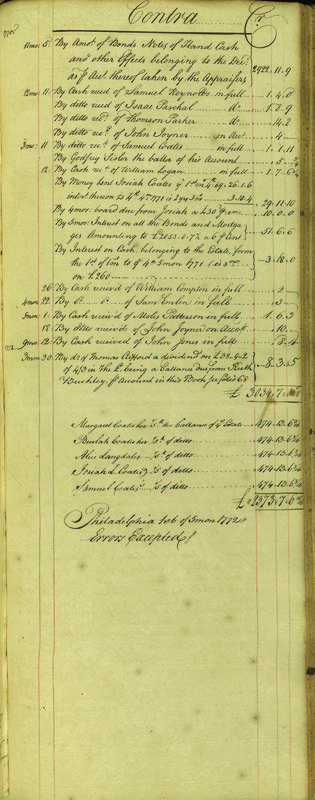 Contra Cr
11mo. 5 By Amot. of Bonds Notes of Hand Cash
and other Effects belonging to the
as Acct. thereof taken by the Appraisers 2922.11.9
12mo 11 By Cash recd of Samuel Reynolds in full 1.4.0
By ditto recd of Isaac Paschal do 1.3.9
By ditto recd. of Thomson Parker do .14.2
By ditto recd. of John Joyner on Acct 4
3mo: 11 By ditto recd of Samuel Coates in full 1.1.11
By Godfrey the balla of his Account .5
12 By Cash recd of William Logan in full 1.7.6
By Money lent Josiah Coates 26.1.6
3.10.4 29.11.10
By 4mos: board due from Josiah a £30 10.0.0
By Interest on all the Bonds and Mortga
ges Amounting to £2053.1.7½ a 6 51.6.6
By Interest on Cash belonging to the Estate, from
the 1st of to ye 4th 3mon 1771
on £260 3.18.0
26 By Cash receiv'd of William Compton in full .2
4mon 22 By Do. Do. of Sam Emlen in full .3
5mon 1 By Cash receiv'd of Patterson in full 1.6.3
18 By ditto receiv'd of John Joyner on Accot .10.
9mo 12 By Cash received of John Jones in full .8.4
1772
3mon 30 By do of Thomas Clifford a dividend on £38.9.2
of 4/3 in the £ being a ballance due from Ruth
Buckley, Account in this Book folio 68 8.3.5
£ 3034.7
Margaret Coates her ballance of ye Estate 474.13.6¾
Beulah Coates her ⅕ of ditto 474.13.6¾
Alice Langdales ⅕ of ditto 474.13.6¾
Josiah L. Coates's ⅕ of ditto 474.13.6¾
Samuel Coates's ⅕ of ditto 474.13.6¾
£ 2373.7.6¾
Philadelphia of 3mon 1772
Errors Excepted